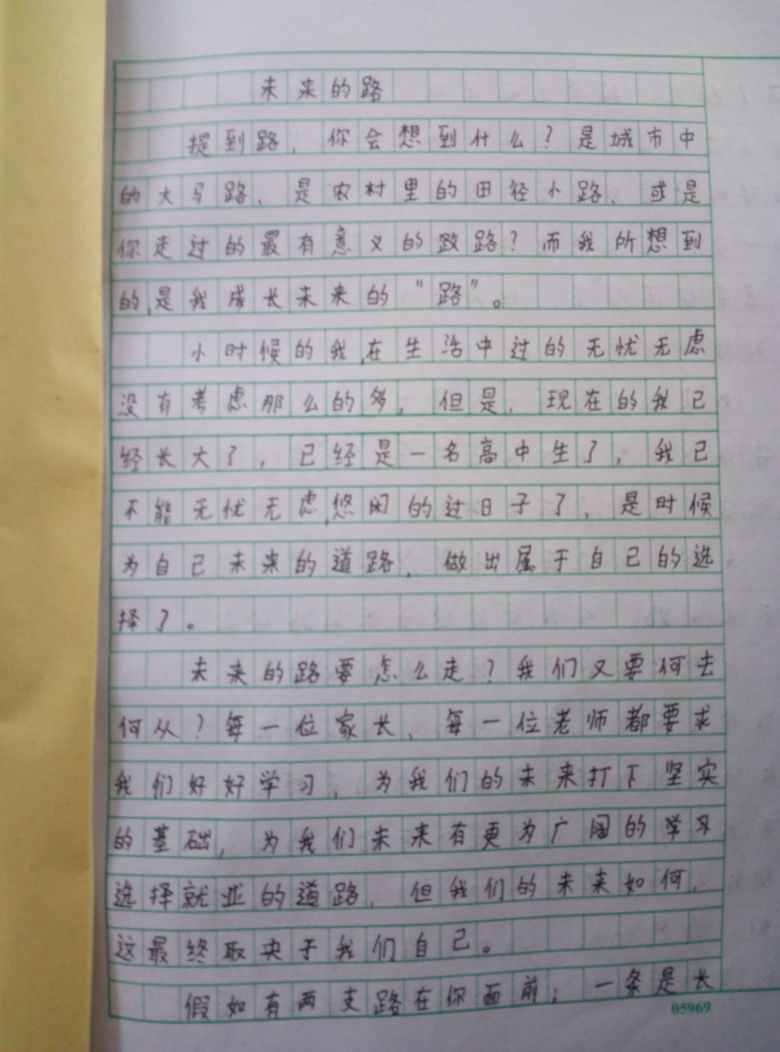 未来的路
提到路，你会想到什么？是城市中
的大马路、是农村里的田径小路、或是
你走过的最有意义的路？而我所想到
的，是我成长未来的“路”。
小时候的我，在生活中过的无忧无虑
没有考虑那么的多，但是，现在的我已
经长大了，已经是一名高中生了，我已
不能无忧无虑，悠闲的过日子了，是时候
为自己未来的道路，做出属于自己的选
择了。
未来的路要怎么走？我们又要何去
何从？每一位家长、每一位老师都要求
我们好好学习，为我们的未来打下坚实
的基础，为我们未来有更为广阔的学习
选择就业的道路，但我们的未来如何，
这最终取决于我们自己。
假如有两支路在你面前；一条是长
05969